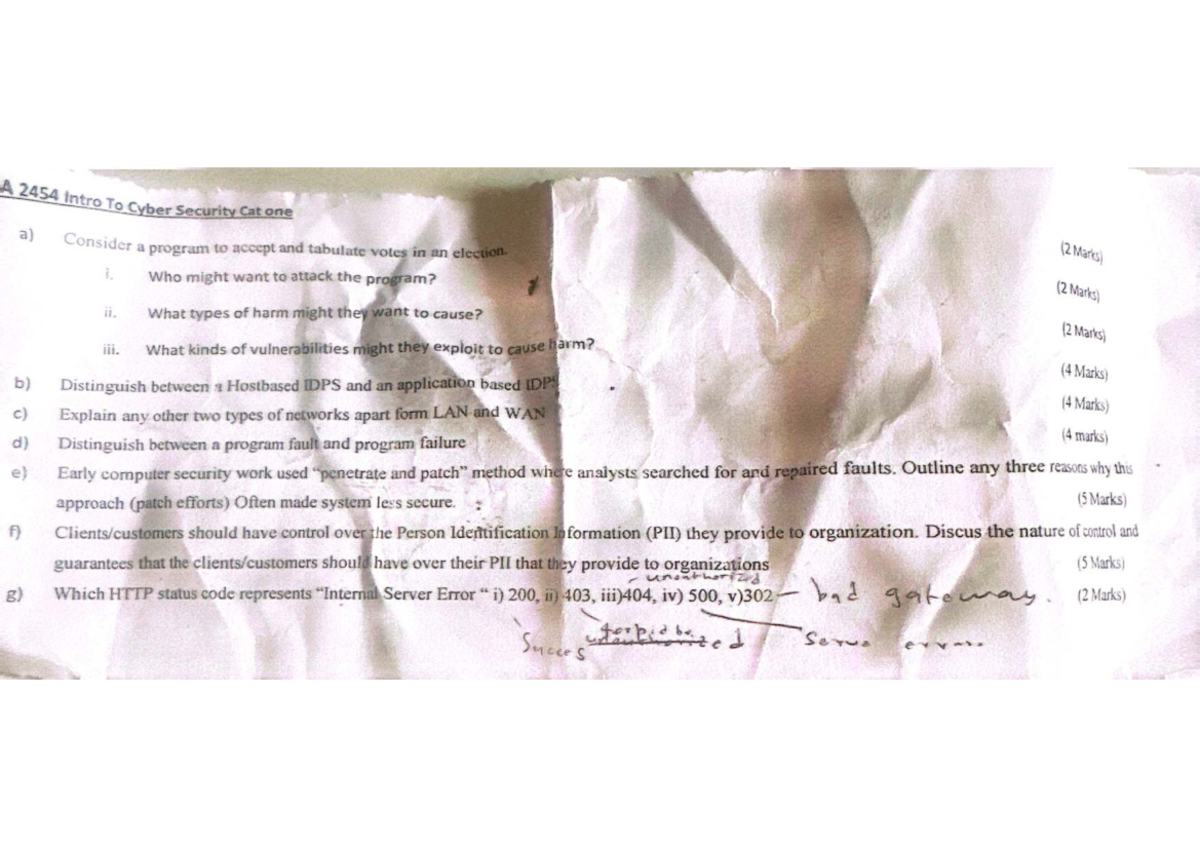 A 2454 Intro To Cyber Security Cat one
a) Consider a program to accept and tabulate votes in an election.
(2 Marks)
i. Who might want to attack the program?
(2 Marks)
ii. What types of harm might they want to cause?
(2 Marks)
iii. What kinds of vulnerabilities might they exploit to cause harm?
b) Distinguish between a Hostbased IDPS and an application based IDPS
(4 Marks)
c) Explain any other two types of networks apart form LAN and WAN
(4 Marks)
d) Distinguish between a program fault and program failure
(4 marks)
e) Early computer security work used “penetrate and patch” method where analysts searched for and repaired faults. Outline any three reasons why this
approach (patch efforts) Often made system less secure. (5 Marks)
f) Clients/customers should have control over the Person Identification Information (PII) they provide to organization. Discus the nature of control and
guarantees that the clients/customers should have over their PII that they provide to organizations (5 Marks)
unauthorized
g) Which HTTP status code represents “Internal Server Error “ i) 200, ii) 403, iii)404, iv) 500, v)302 – bad gateway. (2 Marks)
Succes